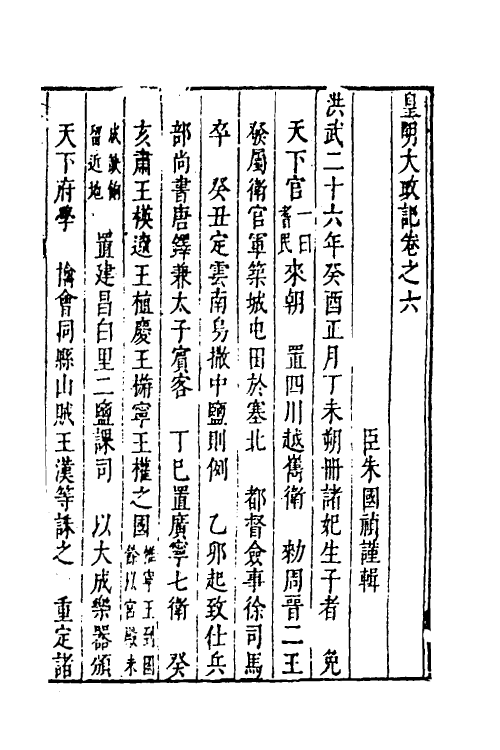 皇明大政記卷之六
臣朱國禎謹輯
洪武二十六年癸酉正月丁未朔冊諸妃生子者　免
天下官一曰耆民來朝　置四川越嶲衛　勑周晉二王
發屬衛官軍築城屯田於塞北　都督僉事徐司馬
卒　癸丑定雲南烏撒中鹽則例　乙卯起致仕兵
部尚書唐鐸兼太子賓客　丁巳置廣寧七衛　癸
亥肅王楧遼王植慶王㮵寧王權之國惟寧王到國餘以宮殿未
成敕俱留近地　置建昌白里二鹽課司　以大成樂器頒
天下府學　擒會同縣山賊王漢等誅之　重定諸